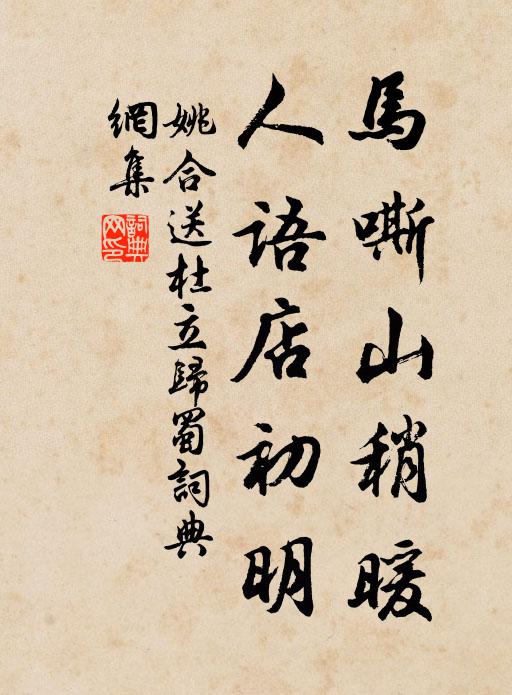 馬嘶山稍暖
人語店初明
姚合送杜立歸蜀詞典
網集
詞典
网印